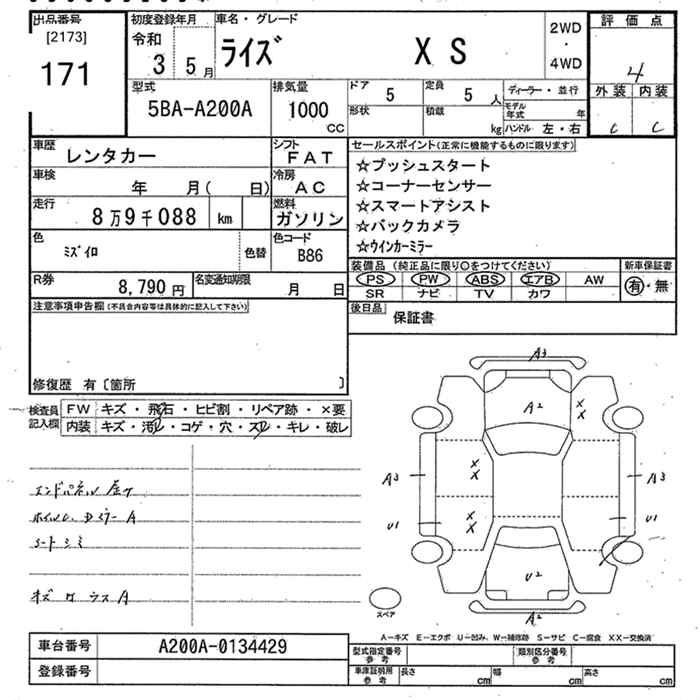 出品番号
[2173]
171
初度登録年月
令和
3 5月
車名・グレード
ライズ XS
2WD
・
4WD
評価点
4
外装 内装
C C
型式
5BA-A200A
排気量
1000
CC
ドア 5
定員 5 人
形状
積載 kg
ディーラー・並行
モデル年式 年
ハンドル 左・右
車歴
レンタカー
シフト
FAT
車検
年 月( 日)
冷房
AC
走行
8万9千088 km
燃料
ガソリン
色
ミズイロ
色替
色コード
B86
R券
8,790円
名変通知期限
月 日
セールスポイント(正常に機能するものに限ります)
☆プッシュスタート
☆コーナーセンサー
☆スマートアシスト
☆バックカメラ
☆ウインカーミラー
装備品 (純正品に限り○をつけてください)
PS PW ABS エアB AW
SR ナビ TV カワ
新車保証書
有・無
後日品
保証書
注意事項申告欄(不具合内容等は具体的に記入して下さい)
修復歴 有〔箇所 〕
検査員記入欄
FW キズ・飛石・ヒビ割・リペア跡・×要
内装 キズ・汚レ・コゲ・穴・スレ・キレ・破レ
エンドパネル
ホイルC. Dミラー A
シートシミ
A3
A2
X X
A3
X X
A3
U1
X X
U1
U2
A2
スペア
A-キズ E-エクボ U-凹み、W-補修跡 S-サビ C-腐食 XX-交換済
車台番号
A200A-0134429
登録番号
型式指定番号
参考
類別区分番号
参考
車庫証明用
参考
長さ cm
幅 cm
高さ cm